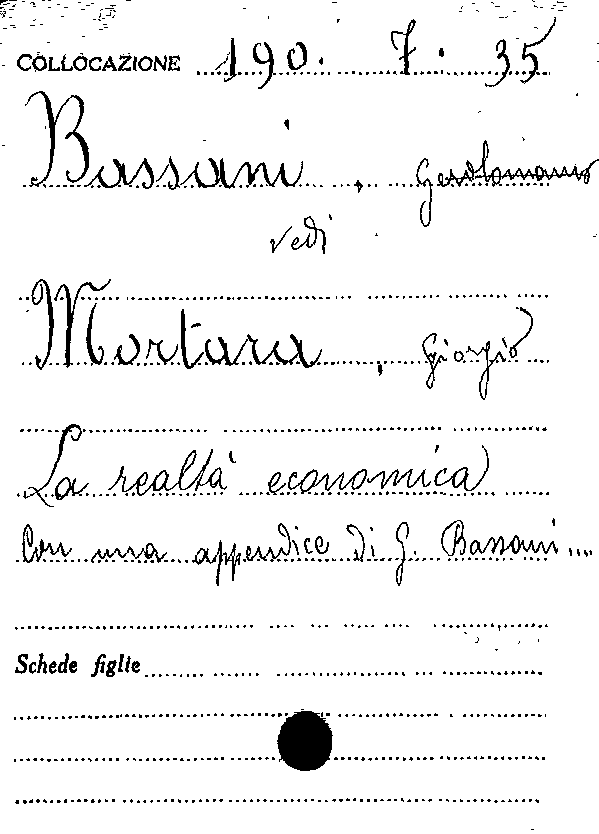 COLLOCAZIONE 190. 7. 35
Bassani, Gerolamino
vedi
Mortara, Giorgio
La realtà economica
Con una appendice di G. Bassani...
Schede figlie